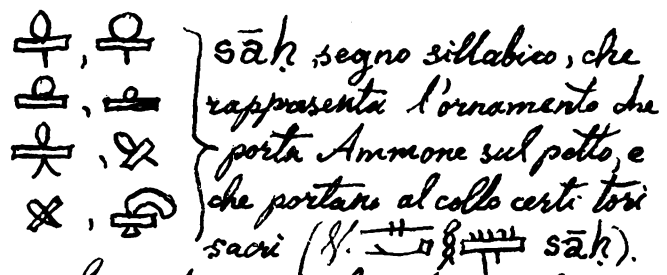 sāḥ, segno sillabico, che
rappresenta l'ornamento che
porta Ammone sul petto, e
che portano al collo certi tori
sacri (V. sāḥ).